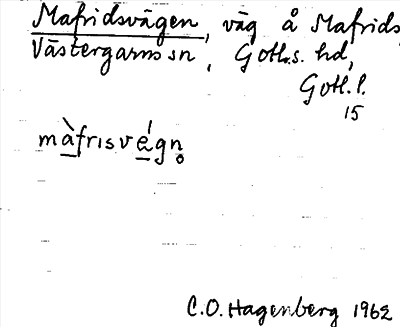 Mafridsvägen, väg å Mafrids
Västergarns sn, Gotl.s. hd,
Gotl. l.
15
màfrɪsvégn̥
C.O. Hagenberg 1962